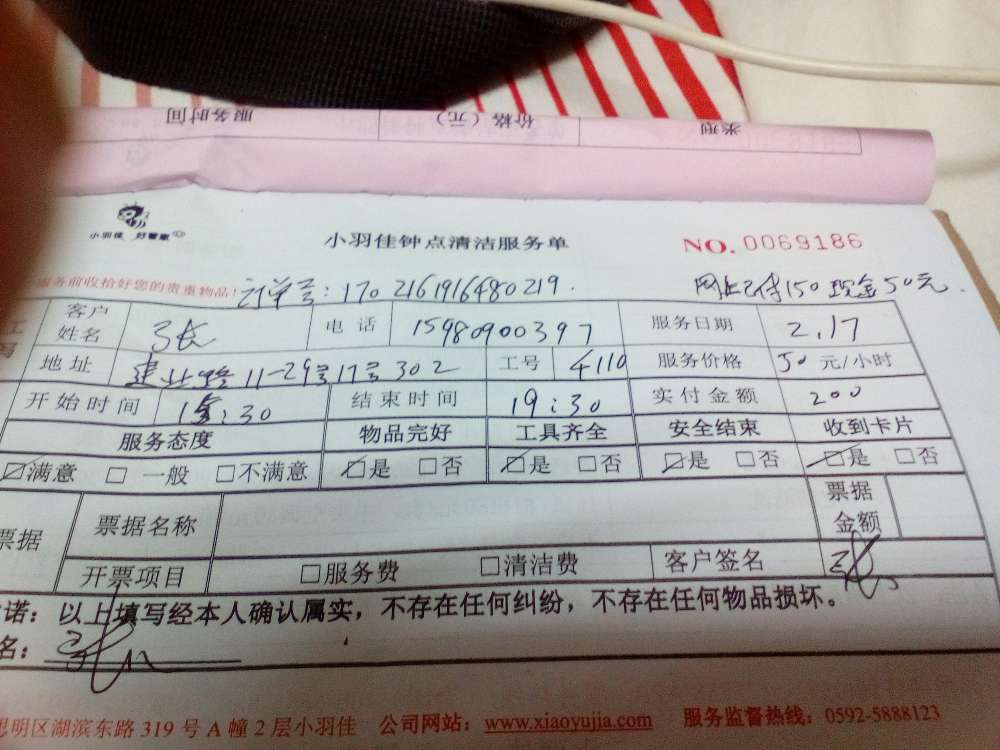 类型 价格（元） 服务时间
小羽佳 好管家
小羽佳钟点清洁服务单 NO. 0069186
服务前收拾好您的贵重物品！订单号：170216191648 0219. 网上已付150 现金50元.
客户姓名 电话 15980900397 服务日期 2.17
地址 建业路11-29号17号302 工号 4110 服务价格 50 元/小时
开始时间 15:30 结束时间 19:30 实付金额 200
服务态度 物品完好 工具齐全 安全结束 收到卡片
☑满意 □一般 □不满意 ☑是 □否 ☑是 □否 ☑是 □否 ☑是 □否
票据 票据名称 票据金额
开票项目 □服务费 □清洁费 客户签名
诺：以上填写经本人确认属实，不存在任何纠纷，不存在任何物品损坏。
名：
思明区湖滨东路 319 号 A 幢 2 层小羽佳 公司网站：www.xiaoyujia.com 服务监督热线：0592-5888123